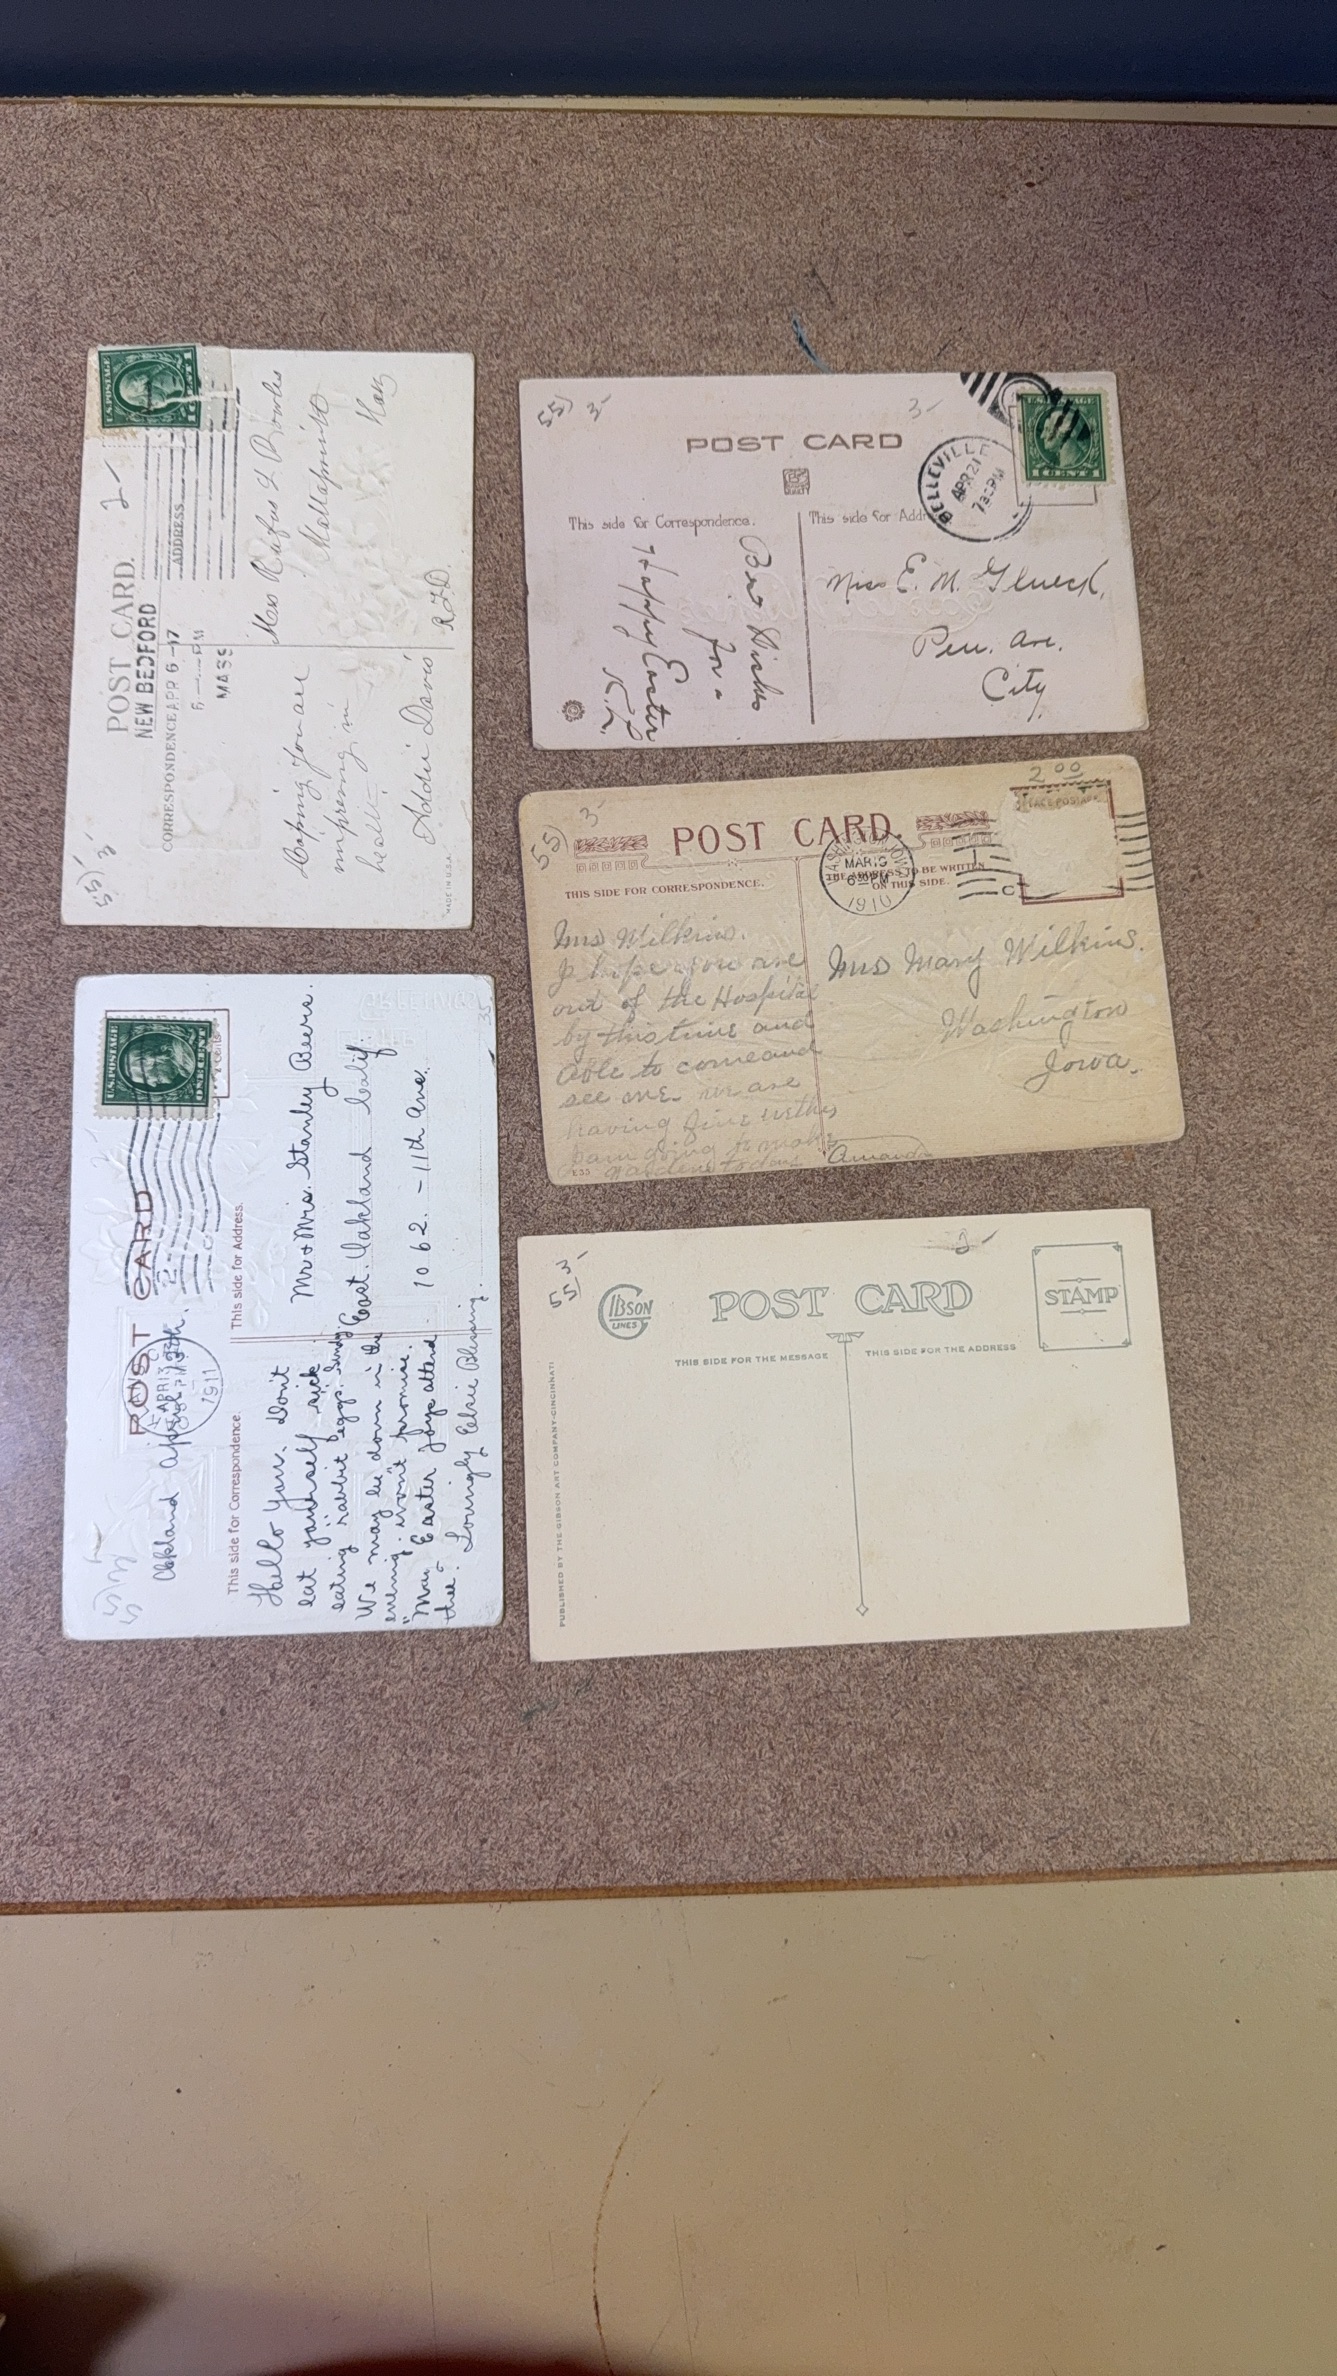 U.S. POSTAGE
1 CENT 1
2-
POST CARD.
NEW BEDFORD
APR 6 -17
MASS
CORRESPONDENCE
ADDRESS
55) 3-
Hoping you are
improving in
health
Addie Davis
Mrs Rufus L Bowles
Mattapoisett
R.F.D.
MADE IN U.S.A.
55) 3-
3-
POST CARD
BELLEVILLE
APR 21
730PM
U.S. POSTAGE
1 CENT 1
This side for Correspondence.
This side for Addr
Best Wishes
for a
Happy Easter
Miss E. M. Glueck,
Pen. Ave.
City
2 00
55) 3-
POST CARD.
WASHINGTON, IOWA
MAR 19
630PM
1910
THIS SIDE FOR CORRESPONDENCE.
THE ADDRESS TO BE WRITTEN
ON THIS SIDE.
Mrs Wilkins.
I hope you are
out of the Hospital
by this time and
able to come and
see me. we are
having fine
I am going to make
garden today Amanda
Mrs Mary Wilkins.
Washington
Iowa.
E35
U.S. POSTAGE
ONE CENT
POST CARD
APR 13
1911
Oakland April 13th.
This side for Correspondence.
This side for Address.
Hello You. Don't
eat yourself sick
eating "rabbit" eggs.
We may be down in the
evening. won't promise.
"May Easter Joys attend
thee". Lovingly Elsie Blessing.
Mr & Mrs. Stanley Beers.
East. Oakland Calif.
1062. - 11th Ave.
35
55 3-
2-
GIBSON
LINES
POST CARD
STAMP
THIS SIDE FOR THE MESSAGE
THIS SIDE FOR THE ADDRESS
PUBLISHED BY THE GIBSON ART COMPANY-CINCINNATI